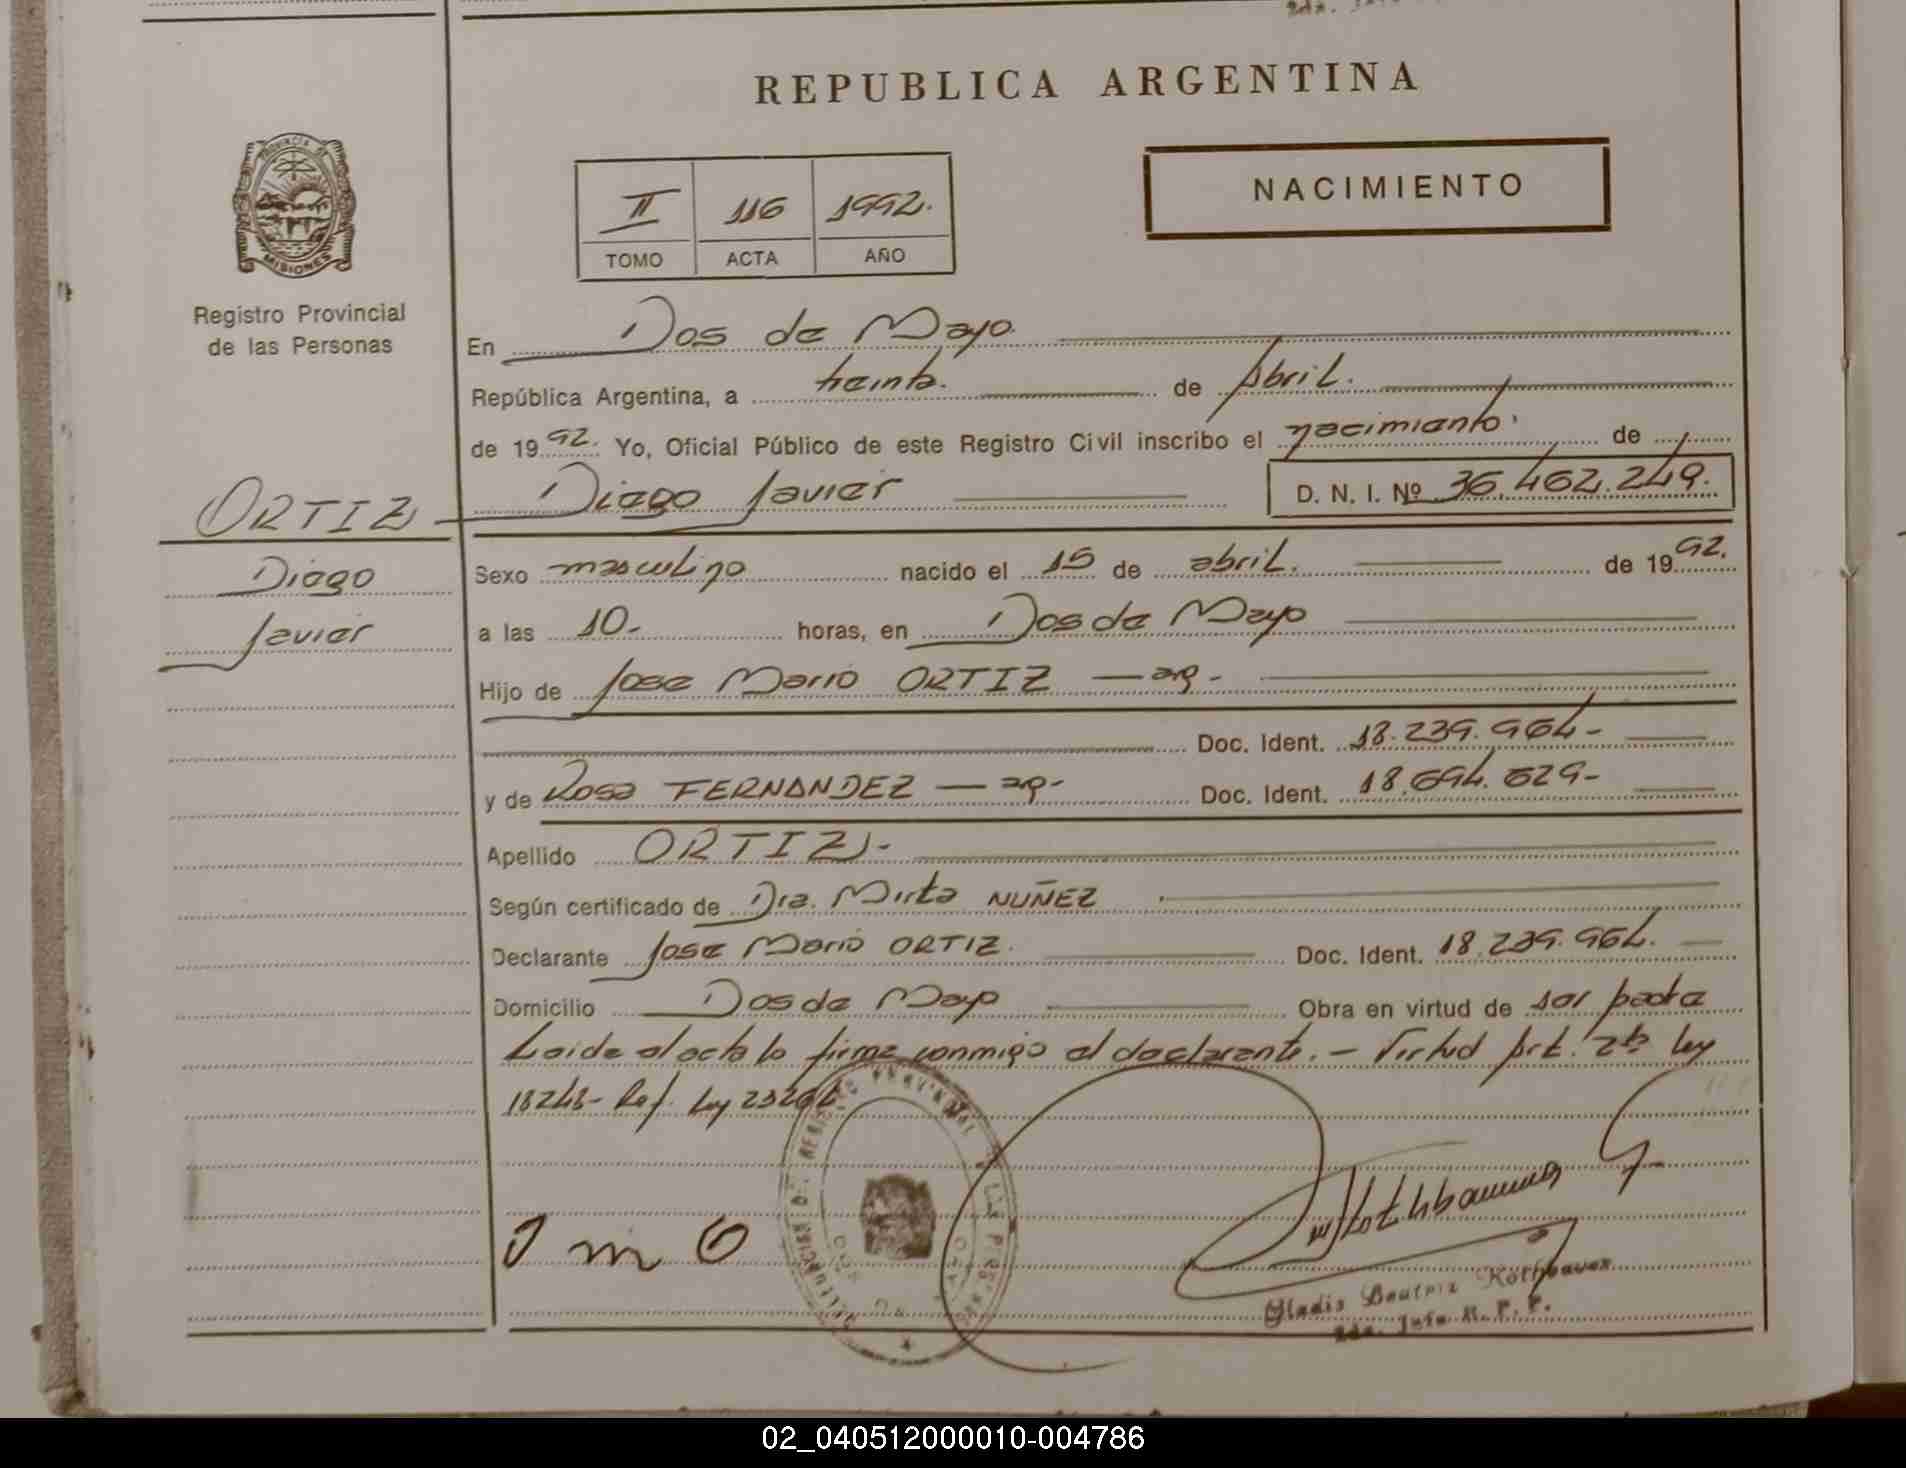 REPUBLICA ARGENTINA
PROVINCIA DE
MISIONES
Registro Provincial
de las Personas
II 116 1992.
TOMO ACTA AÑO
NACIMIENTO
En Dos de Mayo.
República Argentina, a treinta. de Abril.
de 1992. Yo, Oficial Público de este Registro Civil inscribo el nacimiento. de
ORTIZ Diego Javier D. N. I. Nº 36.462.249.
Diego
Javier
Sexo masculino nacido el 15 de abril. de 1992.
a las 10.- horas, en Dos de Mayo
Hijo de Jose Mario ORTIZ — ar.-
Doc. Ident. 18.239.964-
y de Rosa FERNANDEZ — ar.- Doc. Ident. 18.694.629-
Apellido ORTIZ.-
Según certificado de Dra. Mirta NUÑEZ
Declarante Jose Mario ORTIZ. Doc. Ident. 18.239.964.
Domicilio Dos de Mayo Obra en virtud de ser padre
Leida el acta la firma conmigo el declarante.- Virtud Art. 2do ley
18248- Ref. ley 23264.
J m O
Gladis Beatriz
2da. Jefe R. P. P.
02_040512000010-004786